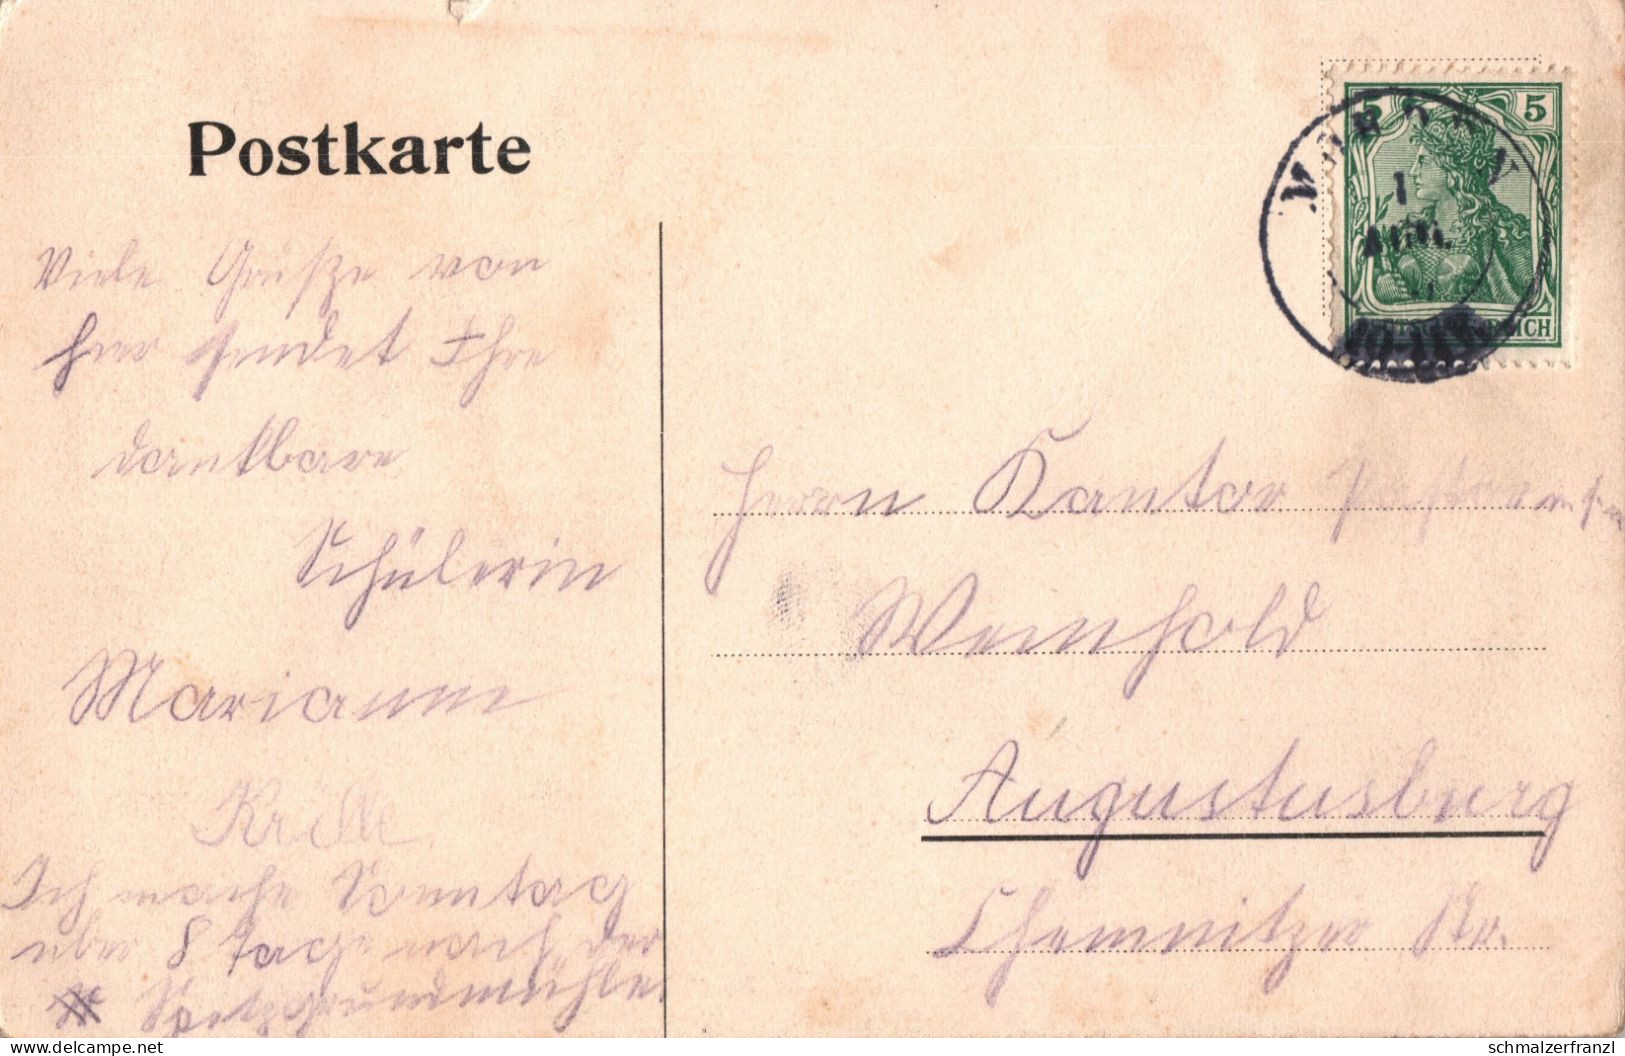 Postkarte
Viele Grüße von
hier sendet Ihre
dankbare
Schülerin
Marianne
Krille.
Ich mache Sonntag
über 8 Tage nach der
Spitzgrundmühle.
5 5
1
AUG.
REICH
Herrn Kantor
Weinhold
Augustusburg
Chemnitzer Str.
schmalzerfranzl